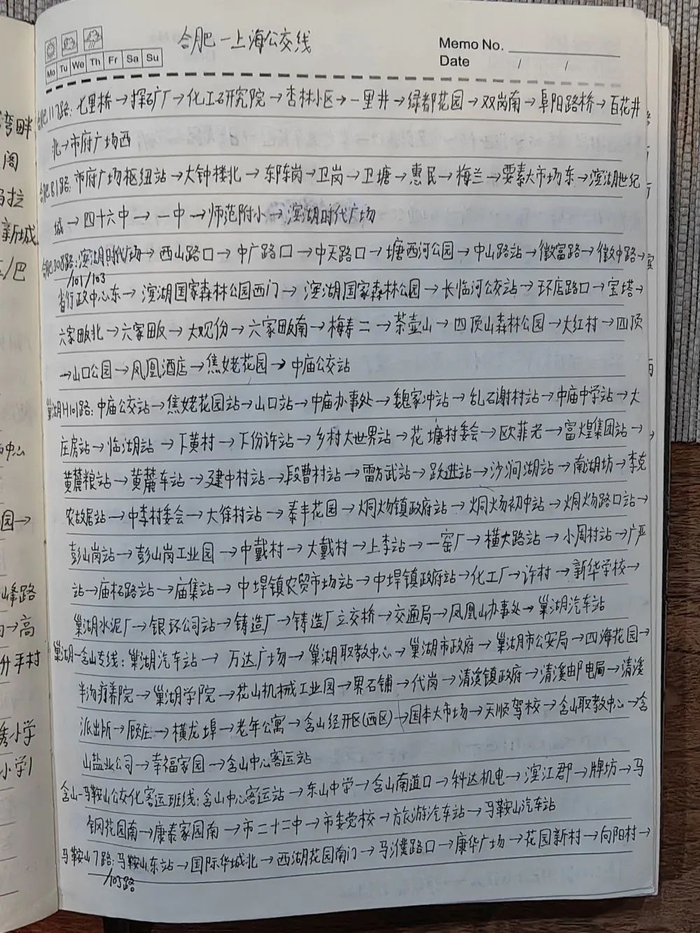 合肥－上海公交线
Memo No.
Date / /
Mo Tu We Th Fr Sa Su
合肥117路：七里桥→探矿厂→化工研究院→杏林小区→一里井→绿都花园→双岗南→阜阳路桥→百花井
北→市府广场西
合肥81路：市府广场枢纽站→大钟楼北→东陈岗→卫岗→卫塘→惠民→梅兰→要素大市场东→滨湖世纪
城→四十六中→一中→师范附小→滨湖时代广场
滨湖时代广场→西山路口→中广路口→中天路口→塘西河公园→中山路站→徽富路→徽中路→
/101/103
省行政中心东→滨湖国家森林公园西门→滨湖国家森林公园→长临河公交站→环店路口→宝塔→
六家畈北→六家畈→大观份→六家畈南→梅寿二→茶壶山→四顶山森林公园→大红村→四顶
→山口公园→凤凰酒店→焦姥花园→中庙公交站
巢湖H101路：中庙公交站→焦姥花园站→山口站→中庙办事处→魏家冲站→乱石谢村站→中庙中学站→大
庄房站→临湖站→下黄村→下份许站→乡村大世界站→花塘村委会→欧菲光→富煌集团站→
黄麓粮站→黄麓车站→建中村站→段曹村站→雷方武站→跃进站→沙涧湖站→南湖坊→李克
农故居站→中李村委会→大俸村站→泰丰花园→烔炀镇政府站→烔炀初中站→烔炀路口站→
彭山岗站→彭山岗工业园→中戴村→大戴村→上李站→一窑厂→横大路站→小周村站→广严
站→庙石路站→庙集站→中垾镇农贸市场站→中垾镇政府站→化工厂→许村→新华学校→
巢湖水泥厂→银环公司站→铸造厂→铸造厂立交桥→交通局→凤凰山办事处→巢湖汽车站
巢湖－含山专线：巢湖汽车站→万达广场→巢湖职教中心→巢湖市政府→巢湖市公安局→四海花园→
半汤疗养院→巢湖学院→花山机械工业园→界石铺→代岗→清溪镇政府→清溪邮电局→清溪
派出所→殷庄→横龙埠→老年公寓→含山经开区(西区)→国本大市场→天顺驾校→含山职教中心→含
山盐业公司→幸福家园→含山中心客运站
含山－马鞍山公交化客运班线：含山中心客运站→东山中学→含山南道口→科达机电→滨江郡→牌坊→马
钢花园南→康泰家园南→市二十二中→市委党校→方旅游汽车站→马鞍山汽车站
马鞍山7路：马鞍山东站→国际华城北→西湖花园南门→马濮路口→康华广场→花园新村→向阳村→
/105路